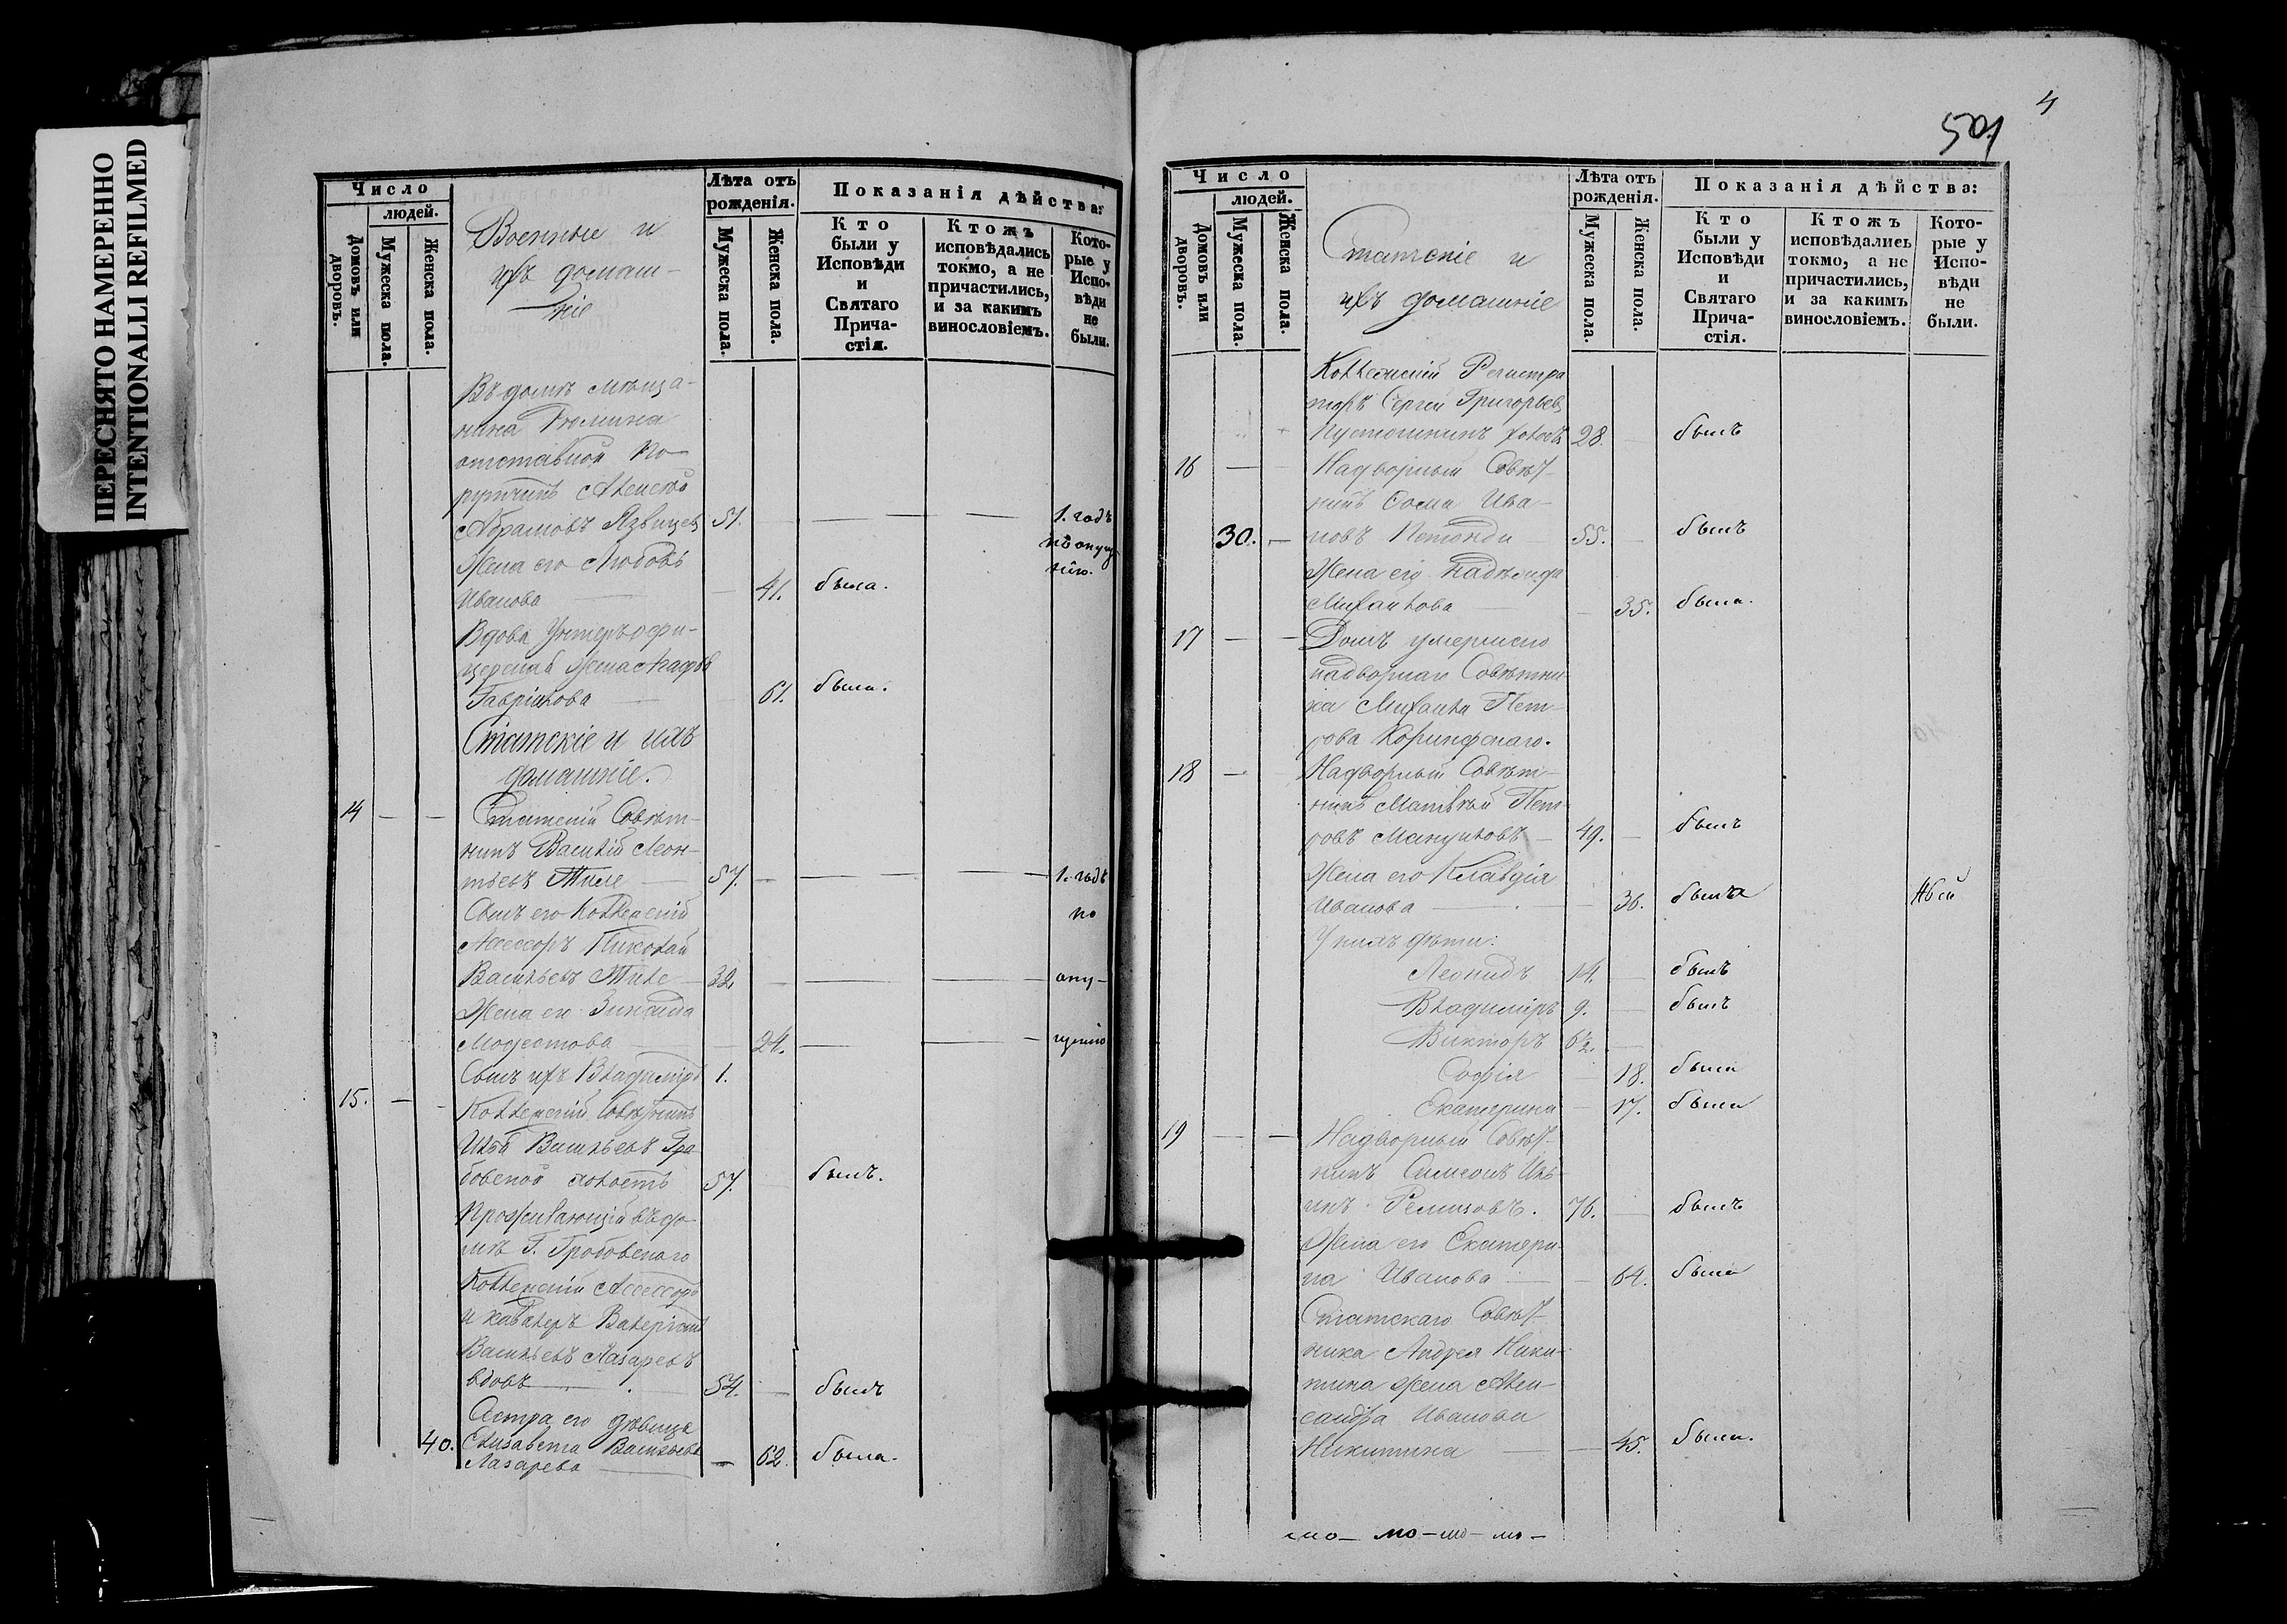 ПЕРЕСНЯТО НАМЕРЕННО
INTENTIONALLI REFILMED
Число
людей.
Домовъ или дворовъ.
Мужеска пола.
Женска пола.
Военные и
ихъ домаш-
ніе
Лѣта отъ
рожденія.
Мужеска пола.
Женска пола.
Показанія дѣйства:
Кто
были у
Исповѣди
и
Святаго
Прича-
стія.
Ктожъ
исповѣдались
токмо, а не
причастились,
и за какимъ
винословіемъ.
Кото-
рые у
Испо-
вѣди
не
были.
Въ домѣ мѣща-
нина
отставной По-
ручикъ Алексѣй
Абрамовъ Язвицевъ 51. — — — 1. годъ
по опущ
Жена его Любовь
нію.
Иванова — 41. была.
Вдова Унтеръ офи-
церская жена
Гавріилова 61. была.
Статскіе и ихъ
домашніе.
14 — — Статскій Совѣт-
никъ Василій Леон-
тьевъ Тиле 57. — — — 1. годъ
Сынъ его Коллежскій по
Ассесоръ Николай
Васильевъ Тиле 32. — — — опу-
Жена его Зинаида
Модестова — 24. — — щенію
Сынъ ихъ Владиміръ 1.
15. — - Коллежскій Совѣтникъ
Илья Васильевъ Гра
бовской холостъ 57. былъ.
Проживающій въ до-
мѣ Г. Гробовскаго
Коллежскій Ассессоръ
и кавалеръ Валеріанъ
Васильевъ Лазаревъ
вдовъ 54. — былъ
Сестра его дѣвица
40. Елизавета Васильева
Лазарева — 62. была.
4
501
Число
людей.
Домовъ или дворовъ.
Мужеска пола.
Женска пола.
Статскіе и
ихъ домашніе
Лѣта отъ
рожденія.
Мужеска пола.
Женска пола.
Показанія дѣйства:
Кто
были у
Исповѣди
и
Святаго
Прича-
стія.
Ктожъ
исповѣдались
токмо, а не
причастились,
и за какимъ
винословіемъ.
Кото-
рые у
Испо-
вѣди
не
были.
Коллежскій Регистра
торъ Сергей Григорьевъ
холостъ 28. — былъ
16 — Надворный Совѣт-
никъ Ѳома Ива-
30. — новъ Петонди 55. — былъ
Жена его Надежда
Михайлова — 35. была.
17 — — Домъ умершаго
надворнаго Совѣтни
ка Михаила Пет-
рова Коринфскаго.
18 — Надворный Совѣт-
никъ Матвѣй Пет
ровъ Мануиловъ — 49. — былъ
Жена его Клавдія
Иванова — 36. была
У нихъ дѣти:
Леонидъ 14. — былъ
Владиміръ 9. — былъ
Викторъ 6½. —
Софія — 18. была
Екатерина — 17. была
19 — — Надворный Совѣт-
никъ Симеонъ Иль
инъ Ремизовъ. 76. — былъ
Жена его Екатери-
на Иванова — 64. была
Статскаго Совѣт-
ника Андрея Ники-
тина жена Алек-
сандра Иванова
Никитина — — 45. была.